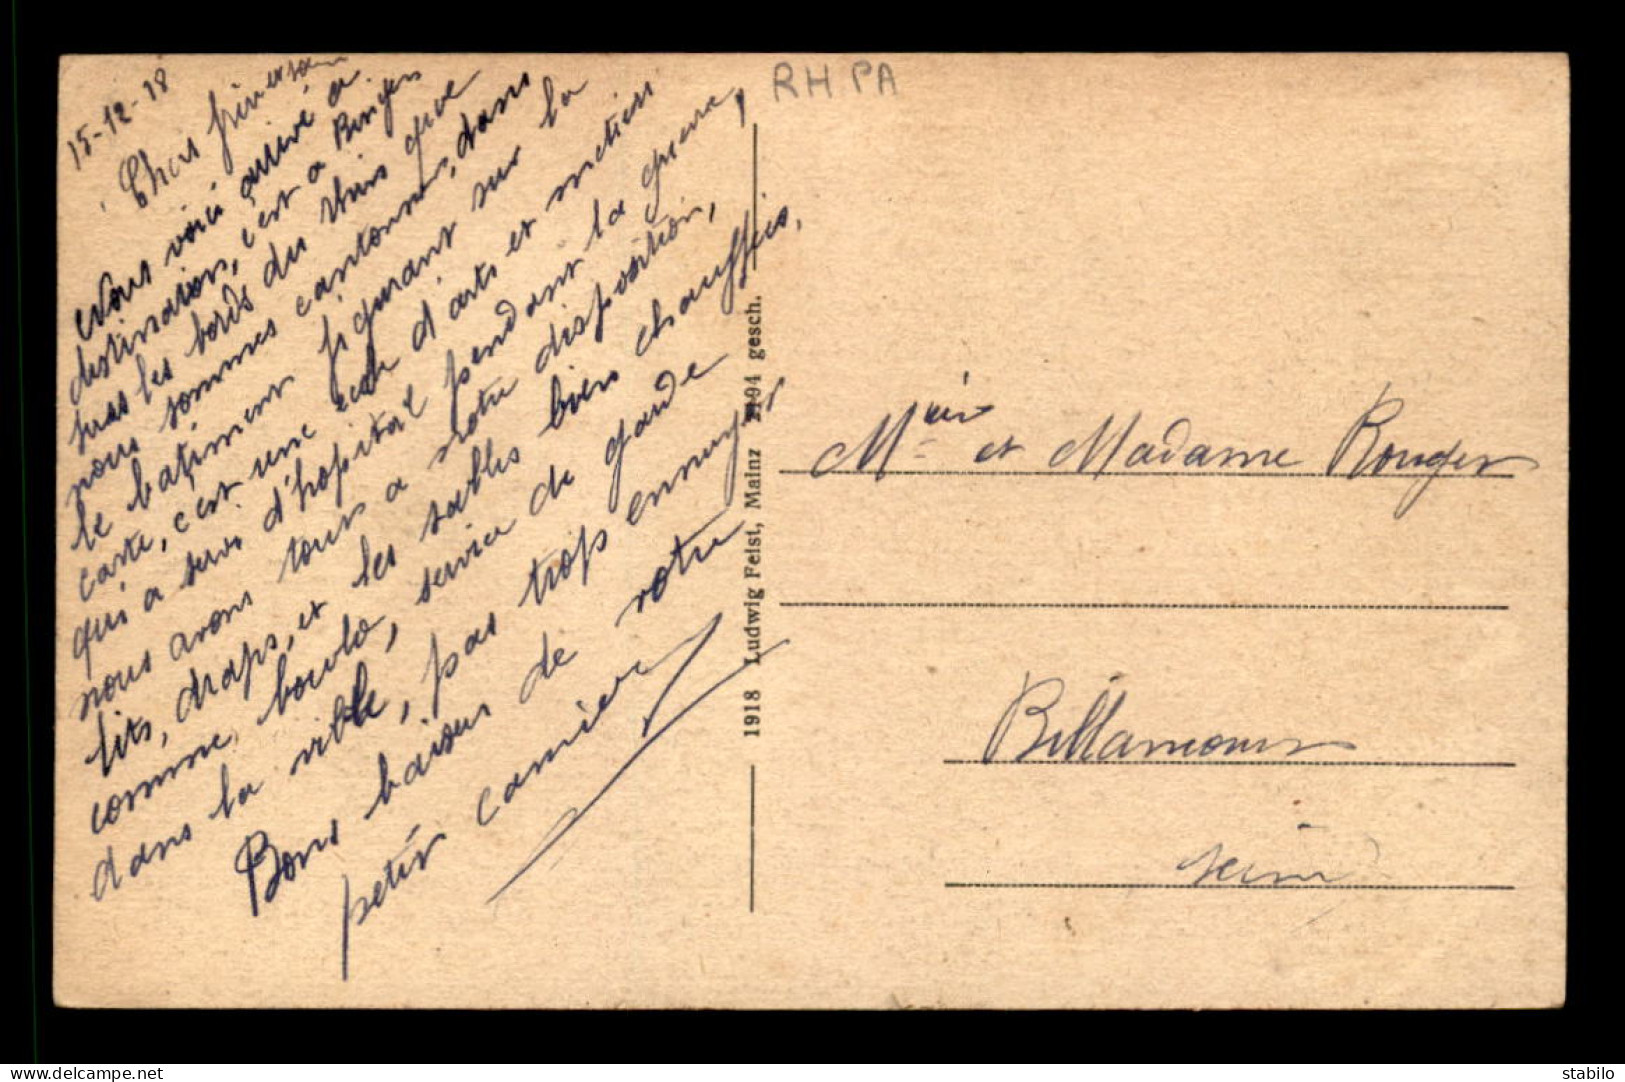 15-12-18
Chers
Nous voici arrivé a
destination, c'est a Bingen
sur les bords du Rhin que
nous sommes cantonnés, dans
le batiment figurant sur la
carte, c'est une ecole d'arts et metiers
qui a servi d'hopital pendant la guerre,
nous avons tours a notre disposition,
lits, draps, et les salles bien chauffées,
comme boulo, service de garde
dans la ville, pas trop ennuyer
Bons baisers de votre
petit
RH PA
1918 Ludwig Feist, Mainz 2194 gesch.
et Madame Rouger
Billancourt
Seine
delcampe.net
stabilo